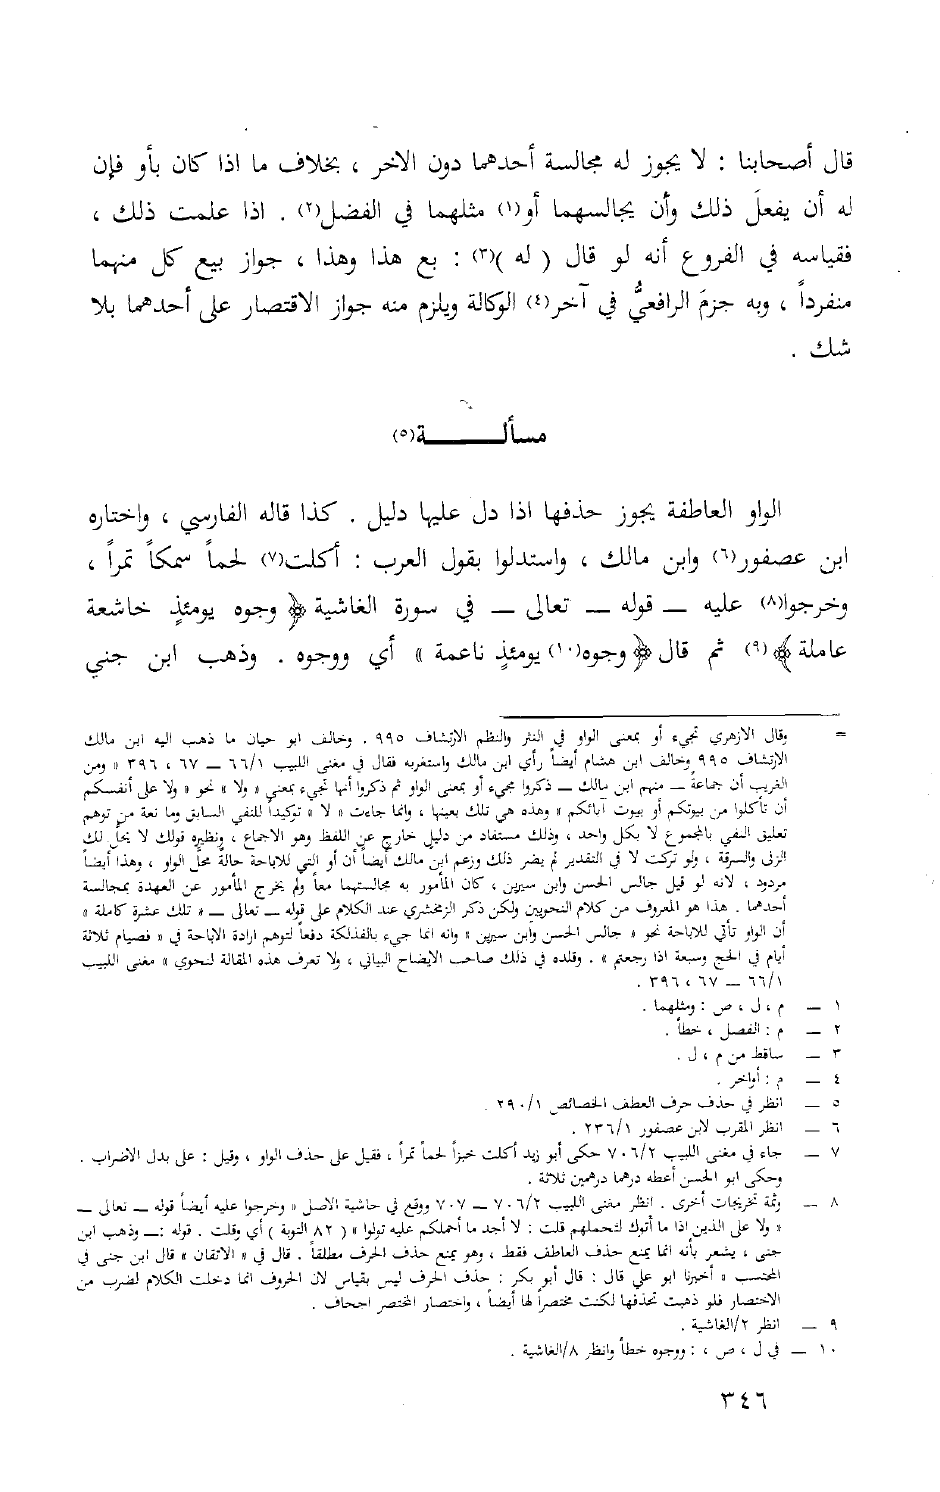 قال أصحابنا : لا يجوز له مجالسة أحدهما دون الاخر ، بخلاف ما اذا كان بأو فإن
له أن يفعلَ ذلك وأن يجالسهما أو(١) مثلهما في الفضل(٢) . اذا علمت ذلك ،
فقياسه في الفروع أنه لو قال ( له )(٣) : بع هذا وهذا ، جواز بيع كل منهما
منفرداً ، وبه جزمَ الرافعيُّ في آخر(٤) الوكالة ويلزم منه جواز الاقتصار على أحدهما بلا
شك .
مسألـــــــة(٥)
الواو العاطفة يجوز حذفها اذا دل عليها دليل . كذا قاله الفارسي ، واختاره
ابن عصفور(٦) وابن مالك ، واستدلوا بقول العرب : أكلت(٧) لحماً سمكاً تمراً ،
وخرجوا(٨) عليه ــ قوله ــ تعالى ــ في سورة الغاشية ﴿ وجوه يومئذٍ خاشعة
عاملة ﴾(٩) ثم قال ﴿ وجوه(١٠) يومئذٍ ناعمة » أي ووجوه . وذهب ابن جني
= وقال الازهري تجيء أو بمعنى الواو في النثر والنظم الارتشاف ٩٩٥ . وخالف ابو حيان ما ذهب اليه ابن مالك
الارتشاف ٩٩٥ وخالف ابن هشام أيضاً رأي ابن مالك واستغربه فقال في مغنى اللبيب ٦٦/١ ــ ٦٧ ، ٣٩٦ « ومن
الغريب أن جماعةً ــ منهم ابن مالك ــ ذكروا مجيء أو بمعنى الواو ثم ذكروا أنها تجيء بمعنى « ولا » نحو « ولا على أنفسكم
أن تأكلوا من بيوتكم أو بيوت آبائكم » وهذه هي تلك بعينها ، وانما جاءت « لا » توكيداً للنفي السابق وما نعة من توهم
تعليق النفي بالمجموع لا بكل واحد ، وذلك مستفاد من دليل خارج عن اللفظ وهو الاجماع ، ونظيره قولك لا يحلّ لك
الزنى والسرقة ، ولو تركت لا في التقدير لم يضر ذلك وزعم ابن مالك أيضاً أن أو التي للاباحة حالةً محلَّ الواو ، وهذا أيضاً
مردود ، لانه لو قيل جالس الحسن وابن سيرين ، كان المأمور به مجالستهما معاً ولم يخرج المأمور عن العهدة بمجالسة
أحدهما . هذا هو المعروف من كلام النحويين ولكن ذكر الزمخشري عند الكلام على قوله ــ تعالى ــ « تلك عشرة كاملة »
أن الواو تأتي للاباحة نحو « جالس الحسن وابن سيرين » وانه انما جيء بالفذلكة دفعاً لتوهم ارادة الاباحة في « فصيام ثلاثة
أيام في الحج وسبعة اذا رجعتم » . وقلده في ذلك صاحب الايضاح البياني ، ولا تعرف هذه المقالة لنحوي » مغنى اللبيب
٦٦/١ ــ ٦٧ ، ٣٩٦ .
١ ــ م ، ل ، ص : ومثلهما .
٢ ــ م : الفصل ، خطأ .
٣ ــ ساقط من م ، ل .
٤ ــ م : أواخر .
٥ ــ انظر في حذف حرف العطف الخصائص ٢٩٠/١ .
٦ ــ انظر المقرب لابن عصفور ٢٣٦/١ .
٧ ــ جاء في مغنى اللبيب ٧٠٦/٢ حكى أبو زيد أكلت خبزاً لحماً تمراً ، فقيل على حذف الواو ، وقيل : على بدل الاضراب .
وحكى ابو الحسن أعطه درهما درهمين ثلاثة .
٨ ــ وثمة تخريجات أخرى . انظر مغنى اللبيب ٧٠٦/٢ ــ ٧٠٧ ووقع في حاشية الاصل « وخرجوا عليه أيضاً قوله ــ تعالى ــ
« ولا على الذين اذا ما أتوك لتحملهم قلت : لا أجد ما أحملكم عليه تولوا » ( ٨٢ التوبة ) أي وقلت . قوله :ــ وذهب ابن
جنى ، يشعر بأنه انما يمنع حذف العاطف فقط ، وهو يمنع حذف الحرف مطلقاً . قال في « الاتقان » قال ابن جنى في
المحتسب « أخبرنا ابو علي قال : قال أبو بكر : حذف الحرف ليس بقياس لان الحروف انما دخلت الكلام لضرب من
الاختصار فلو ذهبت تحذفها لكنت مختصراً لها أيضاً ، واختصار المختصر اجحاف .
٩ ــ انظر ٢/الغاشية .
١٠ ــ في ل ، ص ، : ووجوه خطأ وانظر ٨/الغاشية .
٣٤٦